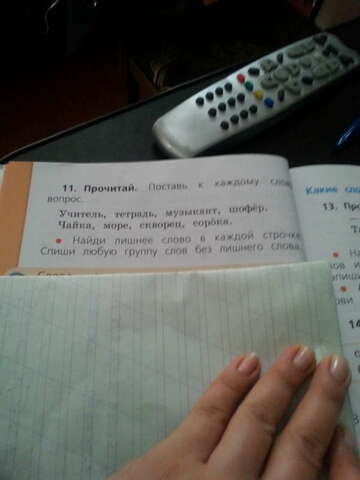 11. Прочитай. Поставь к каждому
вопрос.
Учитель, тетрадь, музыкант, шофёр.
Чайка, море, скворец, сорока.
• Найди лишнее слово в каждой строчке
Спиши любую группу слов без лишнего слова.
Какие
13.
14